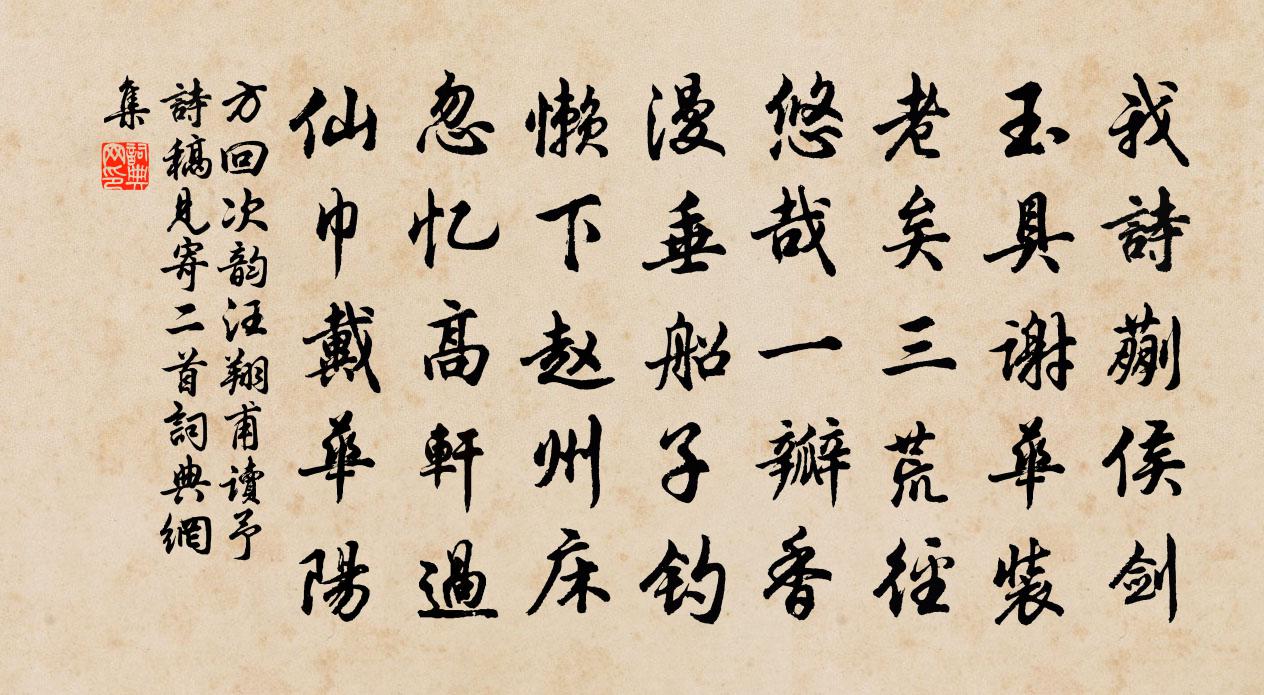 我詩蒯侯剑
玉具謝華裝
老矣三荒徑
悠哉一瓣香
漫垂船子钓
懒下赵州床
忽忆高軒過
仙巾戴華陽
方回次韵汪翔甫讀予
詩稿見寄二首詞典網
集
詞典网印